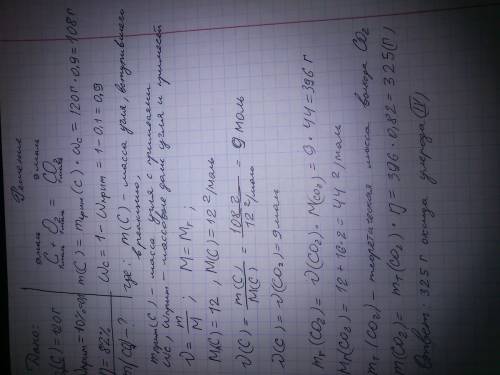 Дано:
m(C)=120г
Wприм=10%
η=82%
m(CO₂)-?
Решение
9моль 9моль
C + O₂ = CO₂
1моль 1моль 1моль
m(C) = mприм(C) · ωc = 120г·0,9=108г
ωc = 1 - ωприм = 1-0,1=0,9
где: m(C) - масса угля, вступившего
в реакцию,
mприм(C) - масса угля с примесями
ωc, ωприм - массовые доли угля и примесей
ν = m/M ; M = Mr ;
Mr(C) = 12 , M(C) = 12 г/моль
ν(C) = m(C)/M(C) = 108 г/12 г/моль = 9 моль
ν(C) = ν(CO₂) = 9 моль
mт(CO₂) = ν(CO₂) · M(CO₂) = 9 · 44 = 396 г
Mr(CO₂) = 12 + 16·2 = 44 г/моль
mт(CO₂) - теоретическая масса выхода CO₂
m(CO₂) = mт(CO₂) · η = 396 · 0,82 = 325(г)
Ответ: 325 г оксида углерода(IV)